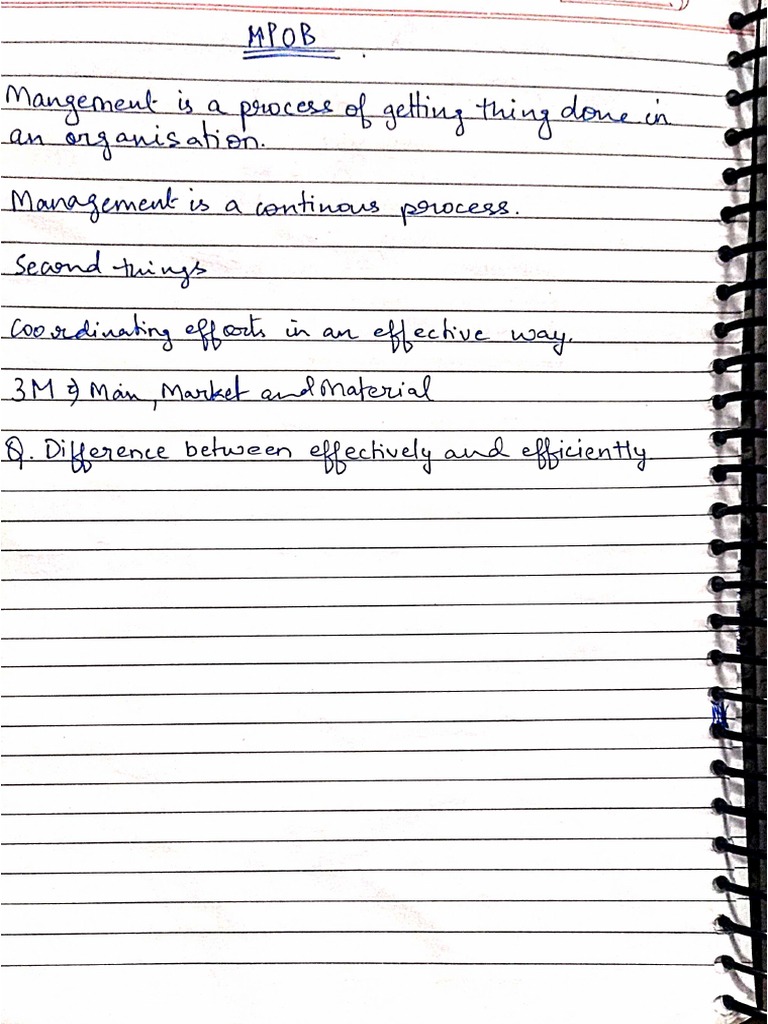 MPOB
Mangement is a process of getting thing done in
an organisation.
Management is a continous process.
Second things
Coordinating efforts in an effective way.
3M => Man, Market and Material
Q. Difference between effectively and efficiently